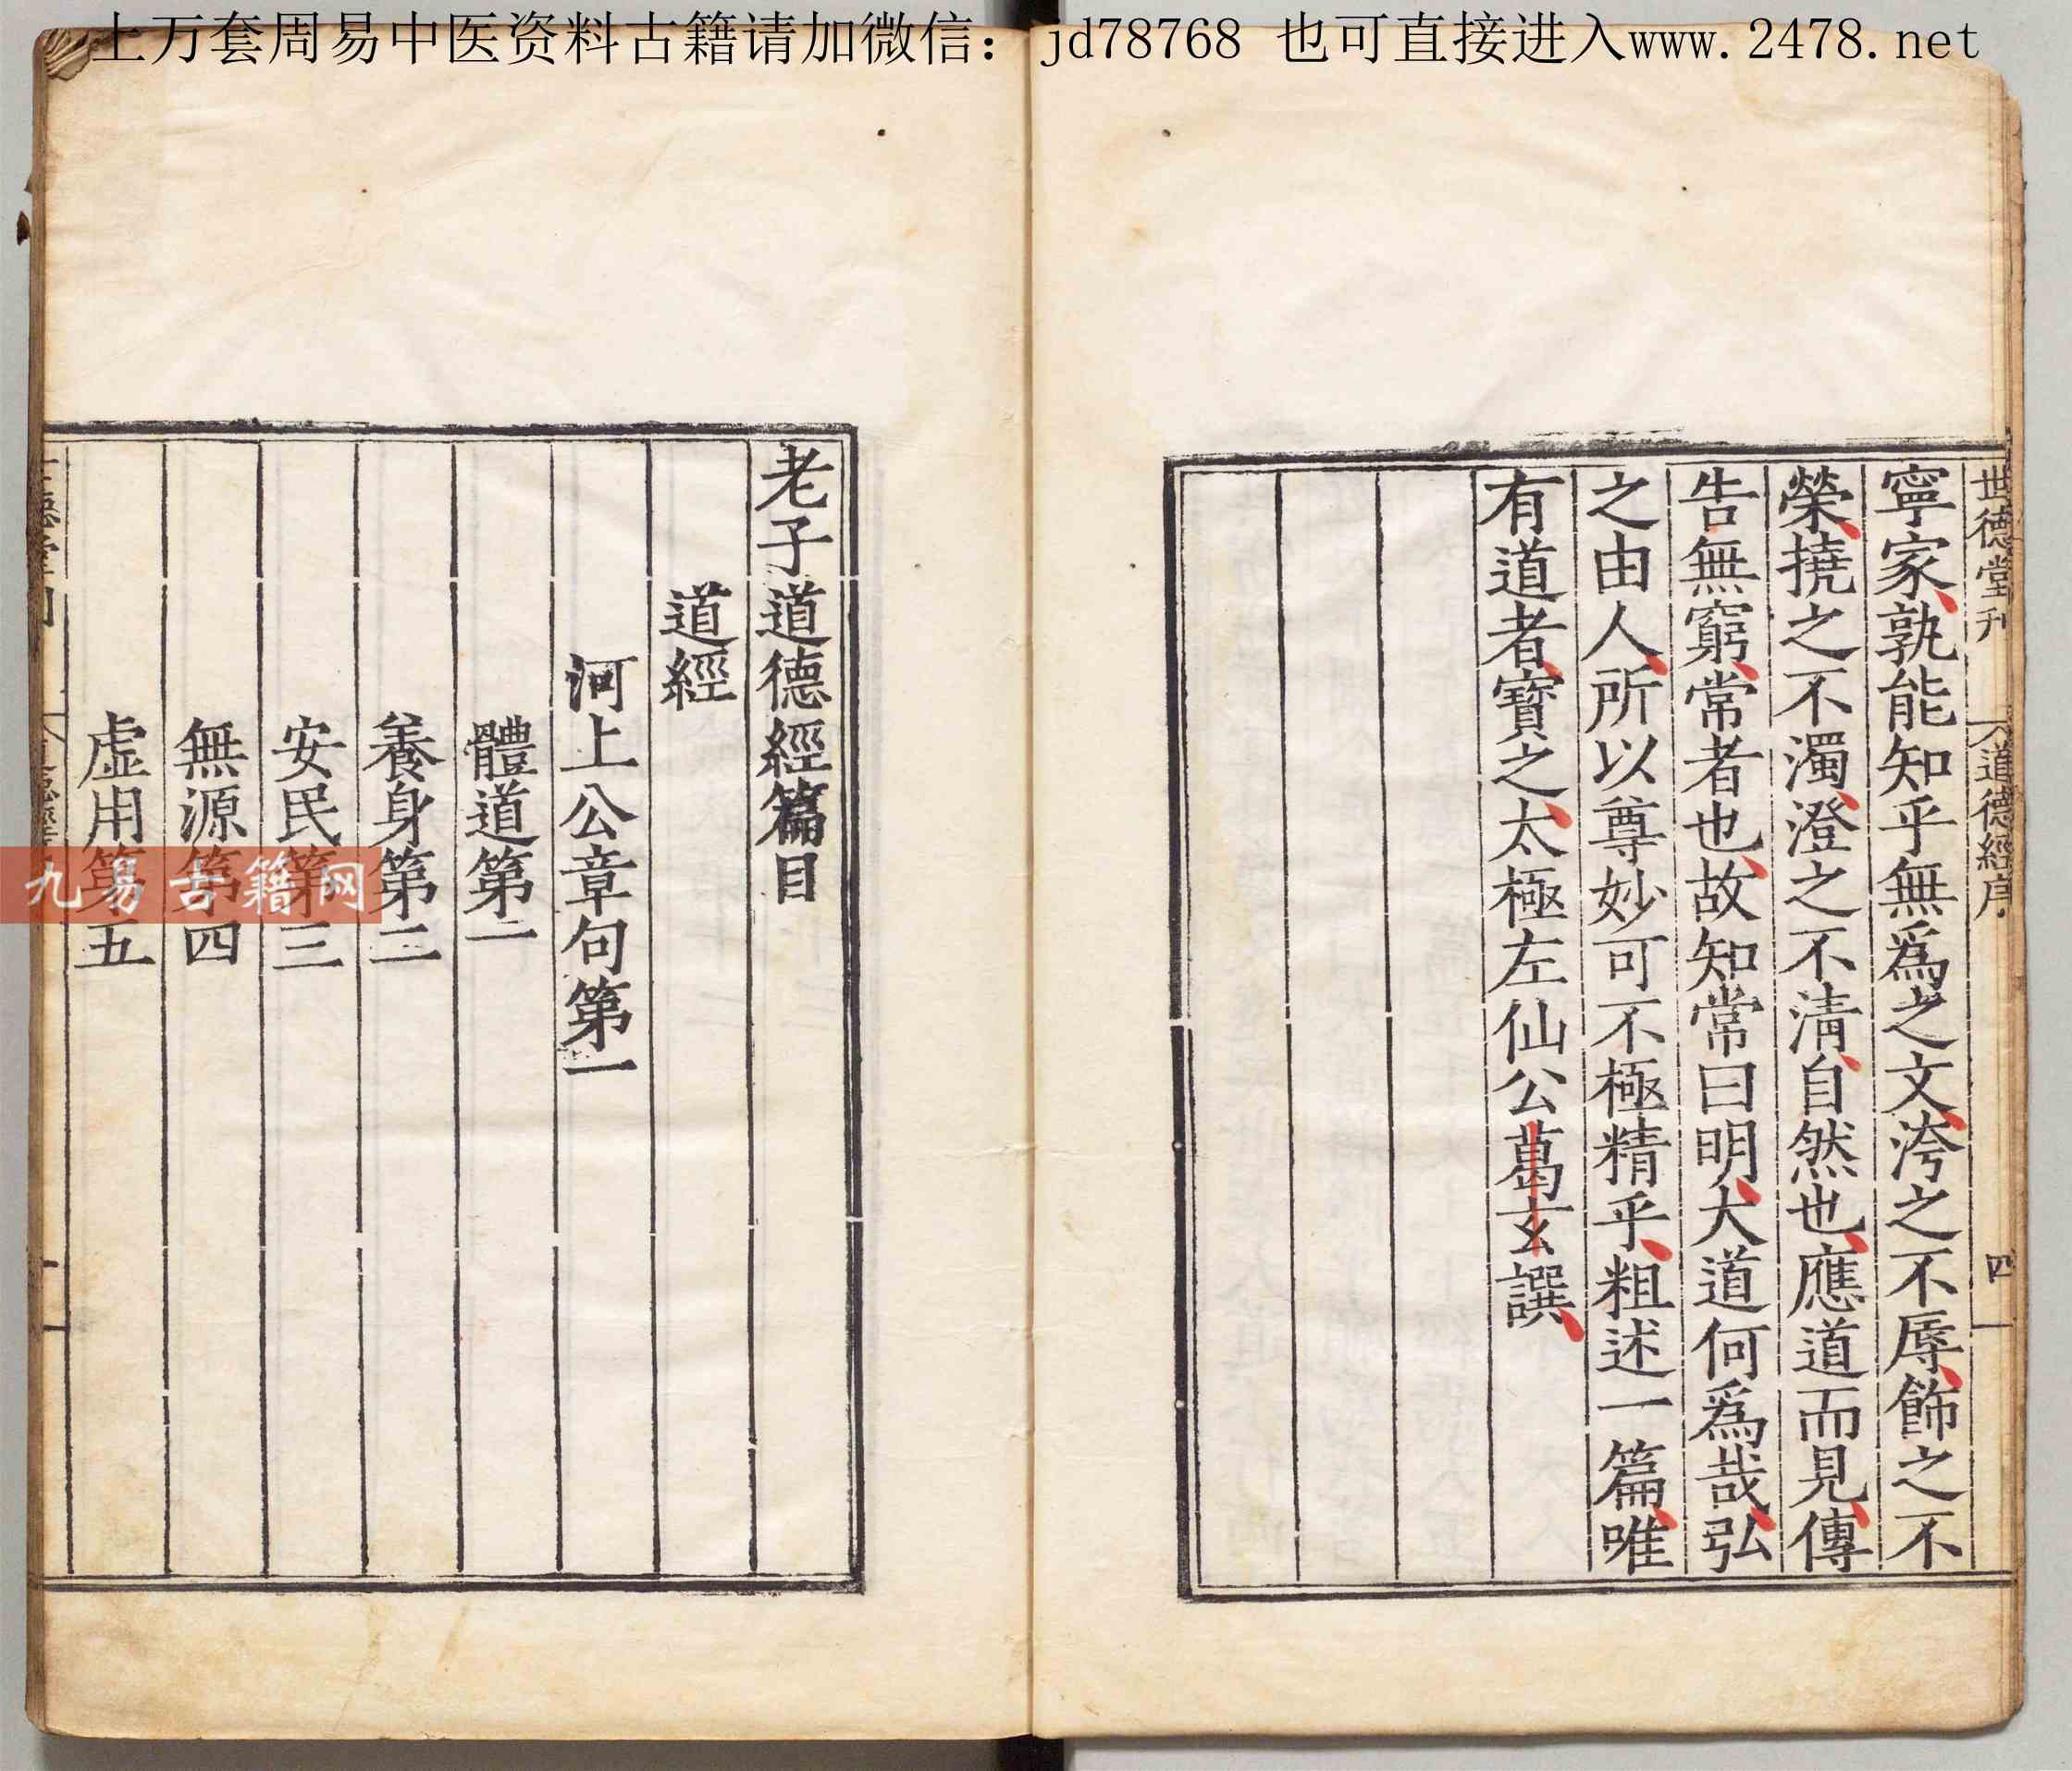 上万套周易中医资料古籍请加微信：jd78768 也可直接进入www.2478.net
世德堂刊 道德經序 四
寧家孰能知乎無爲之文洿之不辱飾之不
榮撓之不濁澄之不清自然也應道而見傳
告無窮常者也故知常曰明大道何爲哉弘
之由人所以尊妙可不極精乎粗述一篇唯
有道者寶之太極左仙公葛玄譔
老子道德經篇目
道經
河上公章句第一
體道第一
養身第二
安民第三
無源第四
虛用第五
九易古籍网